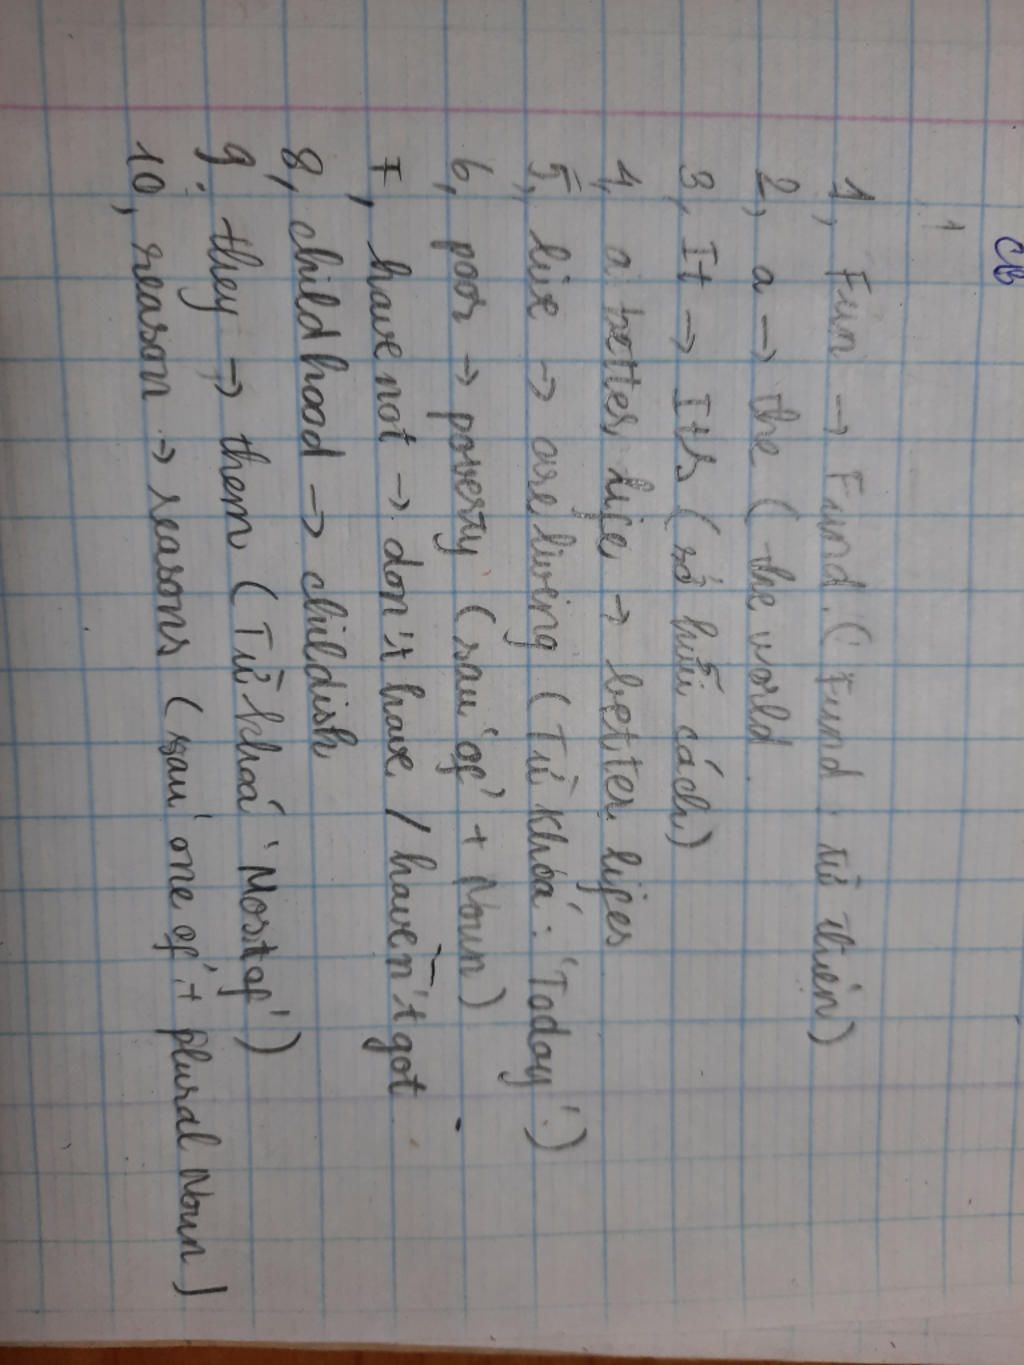 CB
1
1, Fun → Fund. ( Fund : từ thiện)
2, a → the ( the world
3, It → Its ( sở hữu cách)
4, a better life → better lifes
5, live → are living (Từ khoá : 'Today')
6, poor → poverty (sau 'of' + Noun)
7, have not → don't have / haven't got
8, childhood → childish
9, they → them (Từ khoá 'Most of')
10, reason → reasons (sau 'one of' + plural Noun)